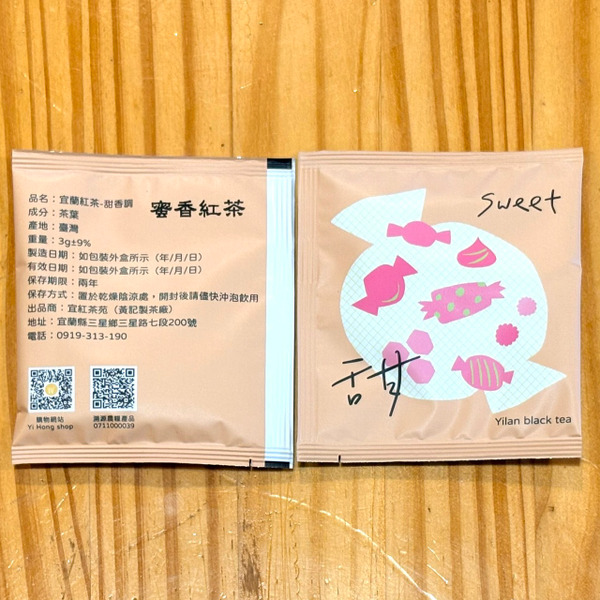 蜜香紅茶
品名：宜蘭紅茶-甜香調
成分：茶葉
產地：臺灣
重量：3g±9%
製造日期：如包裝外盒所示（年/月/日）
有效日期：如包裝外盒所示（年/月/日）
保存期限：兩年
保存方式：置於乾燥陰涼處，開封後請儘快沖泡飲用
出品商：宜紅茶苑（黃記製茶廠）
地址：宜蘭縣三星鄉三星路七段200號
電話：0919-313-190
購物網站
Yi Hong shop
溯源農糧產品
0711000039
sweet
甜
Yilan black tea